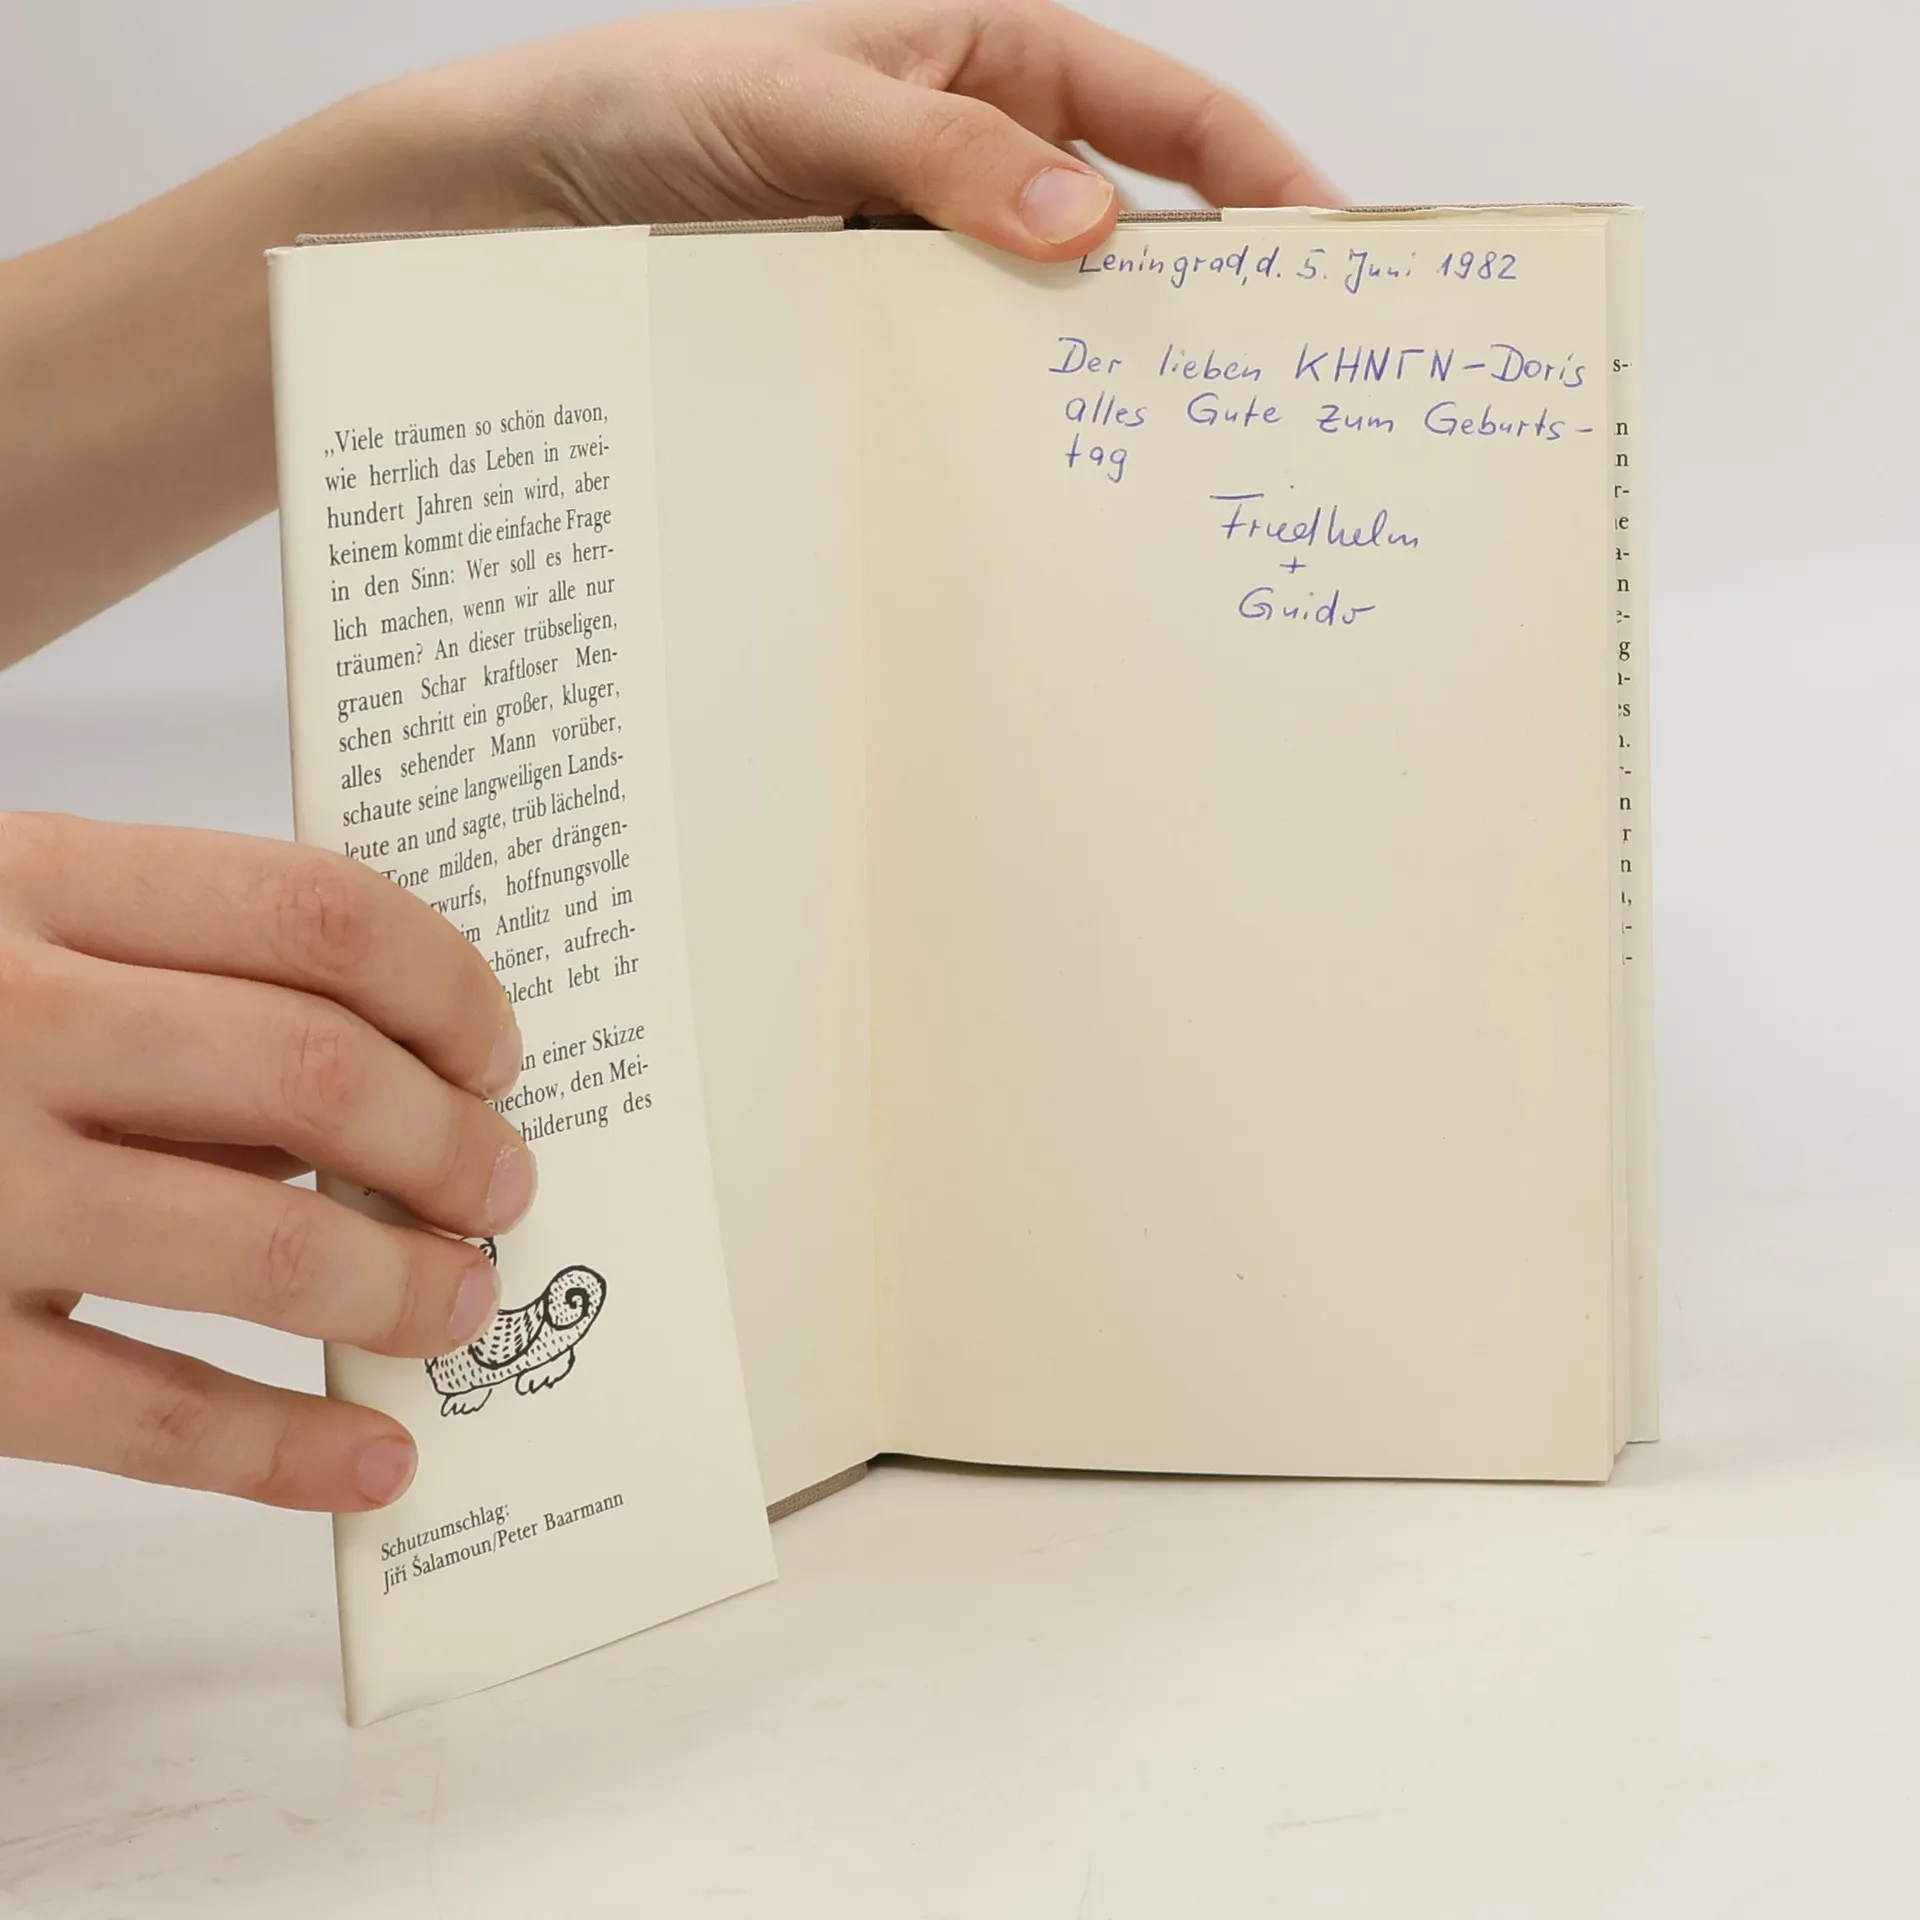 „Viele träumen so schön davon,
wie herrlich das Leben in zwei-
hundert Jahren sein wird, aber
keinem kommt die einfache Frage
in den Sinn: Wer soll es herr-
lich machen, wenn wir alle nur
träumen? An dieser trübseligen,
grauen Schar kraftloser Men-
schen schritt ein großer, kluger,
alles sehender Mann vorüber,
schaute seine langweiligen Lands-
leute an und sagte, trüb lächelnd,
Tone milden, aber drängen-
wurfs, hoffnungsvolle
im Antlitz und im
chöner, aufrech-
hlecht lebt ihr
in einer Skizze
chechow, den Mei-
childerung des
Schutzumschlag:
Jiří Šalamoun/Peter Baarmann
Leningrad, d. 5. Juni 1982
Der lieben KHNTN-Doris
alles Gute zum Geburts-
tag
Friedhelm
+
Guido
s-
n
n
r-
n
g
n
r
n